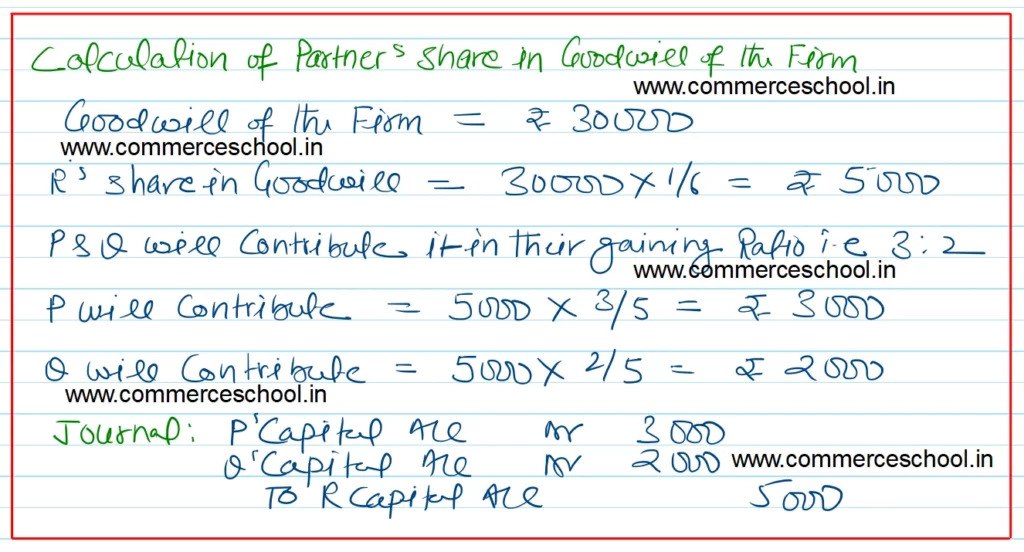 Calculation of Partner's Share in Goodwill of the Firm
www.commerceschool.in
Goodwill of the Firm = ₹ 30000
www.commerceschool.in
R's share in Goodwill = 30000 × 1/6 = ₹ 5000
P & Q will Contribute it in their gaining Ratio i.e 3:2
www.commerceschool.in
P will Contribute = 5000 × 3/5 = ₹ 3000
Q will Contribute = 5000 × 2/5 = ₹ 2000
www.commerceschool.in
Journal: P'Capital A/c Dr 3000
Q'Capital A/c Dr 2000 www.commerceschool.in
To R Capital A/c 5000